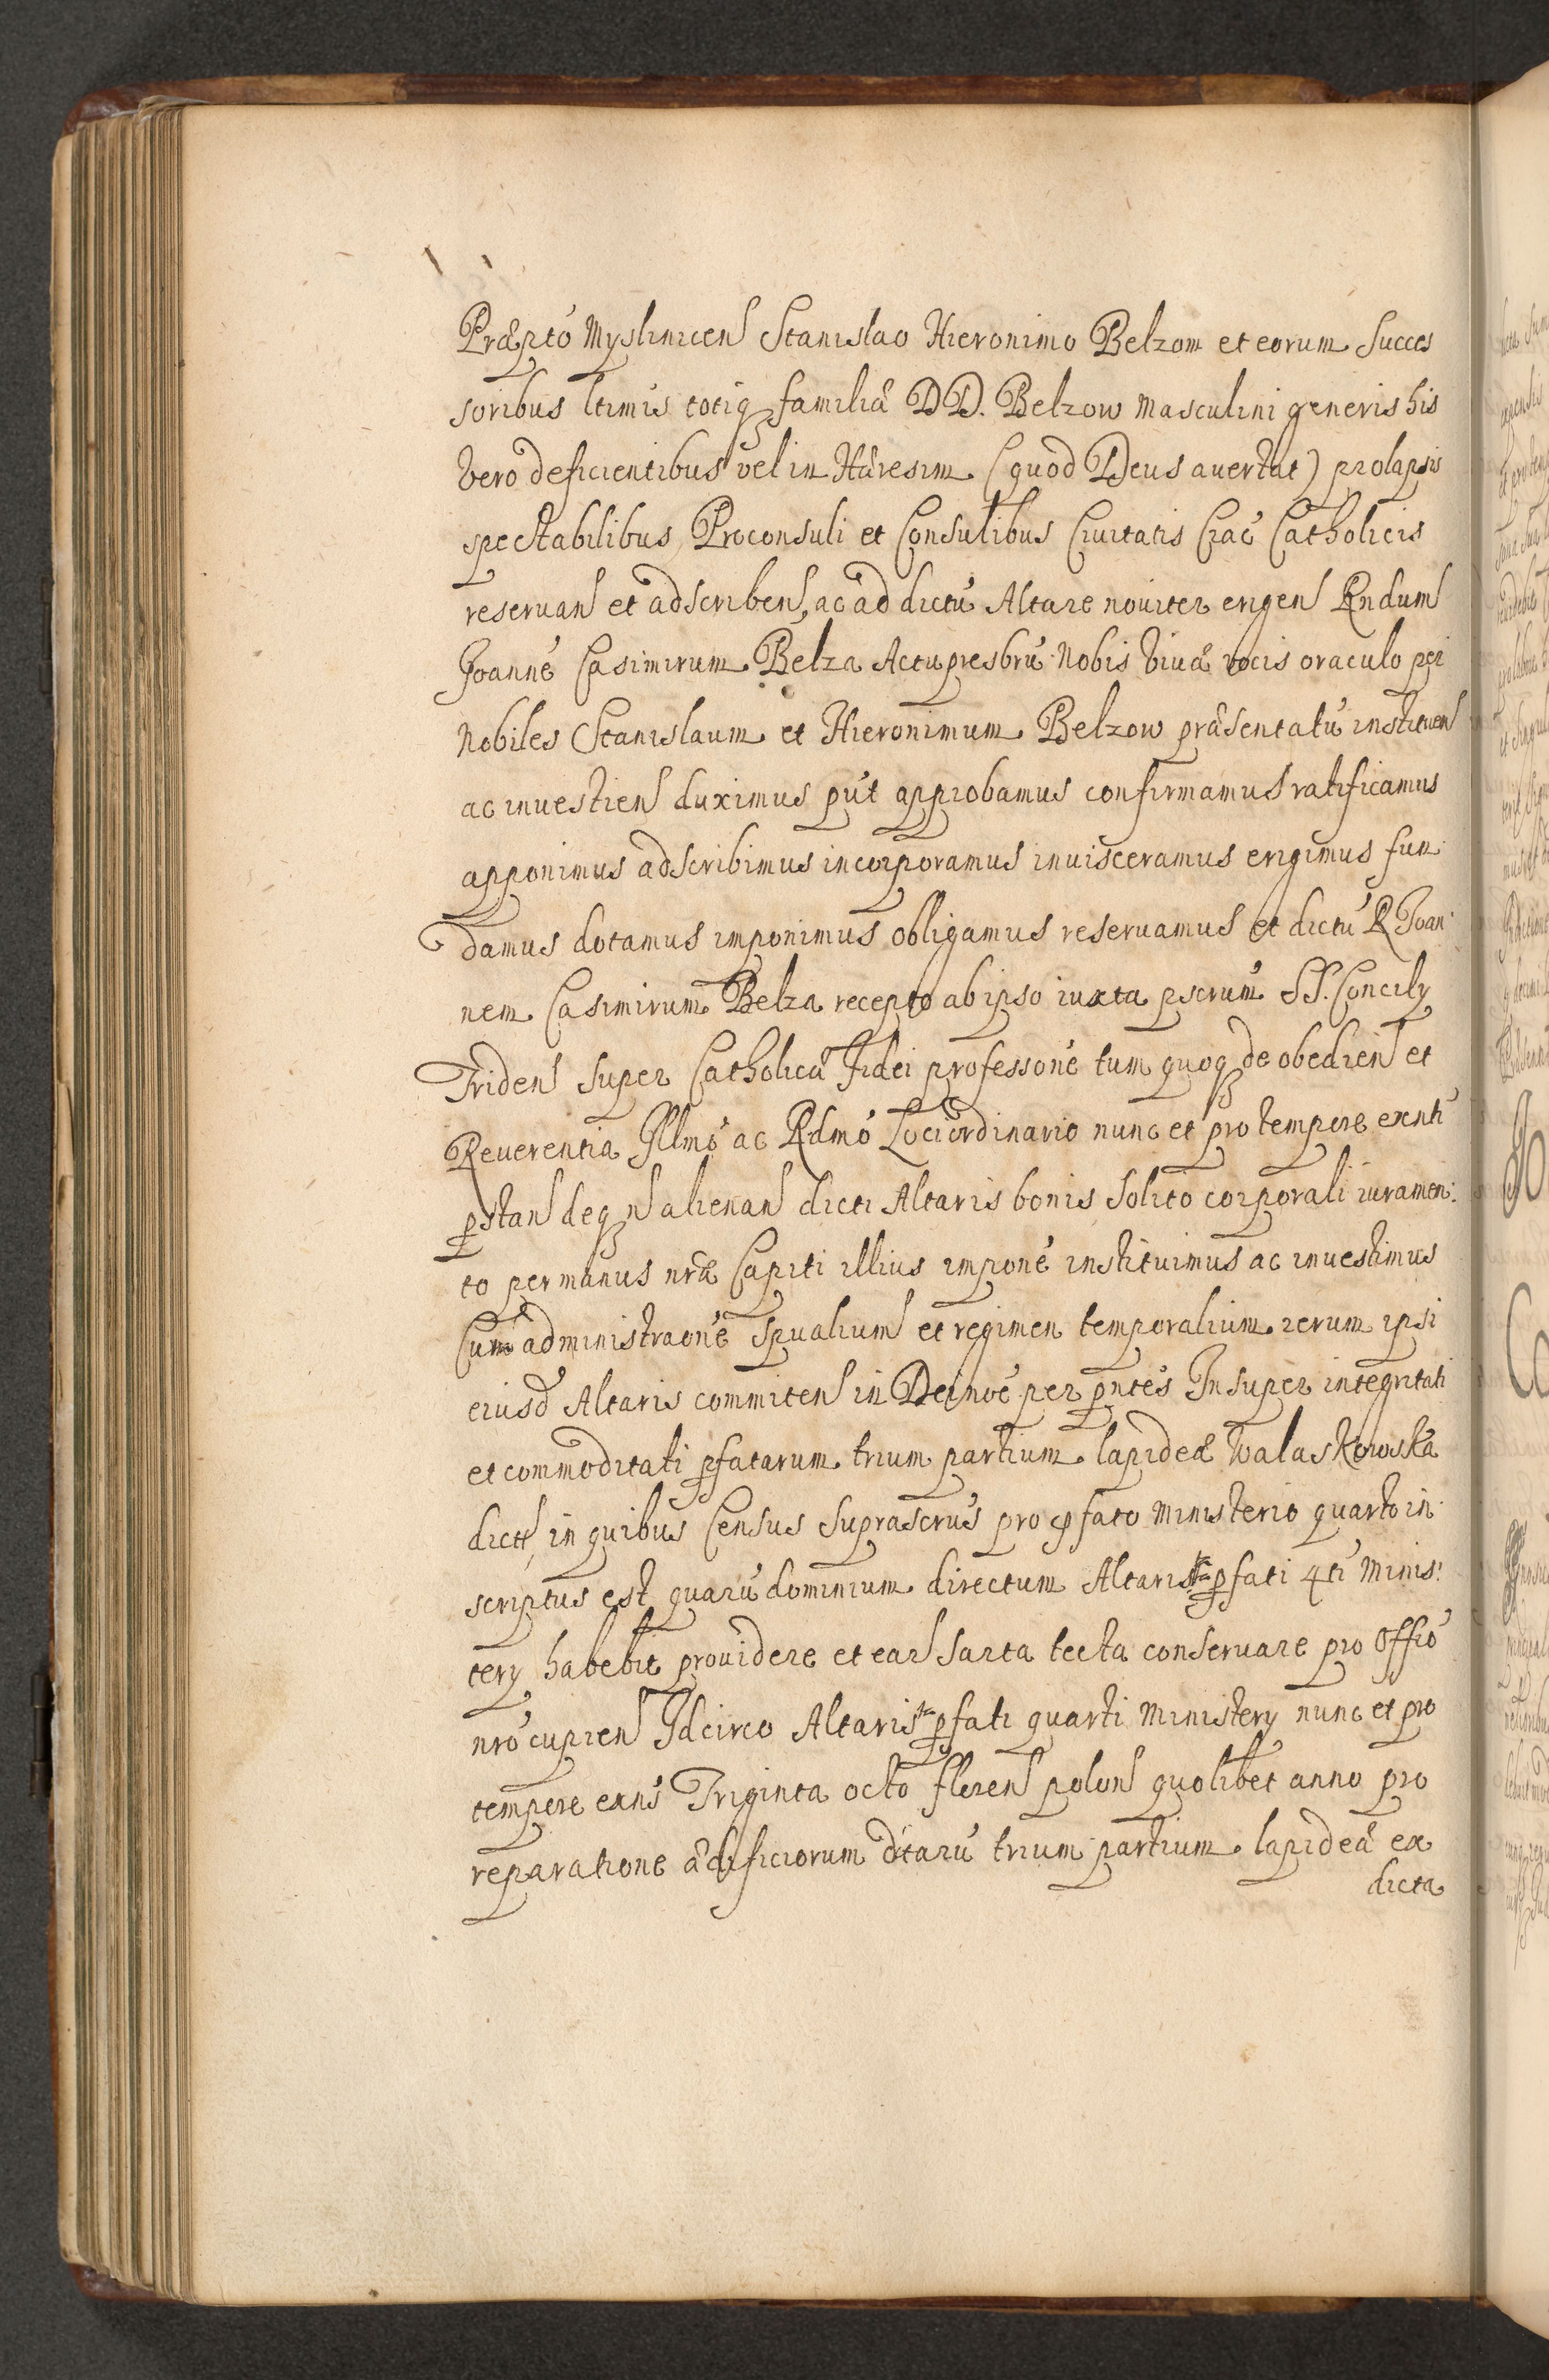 Præpto Myslinicen Stanislao Hieronimo Belzom et eorum Succes
soribus ltimis totiq familiæ DD. Belzow Masculini generis his
vero deficientibus vel in Hæresim (quod Deus avertat) prolapsis
spectabilibus Proconsuli et Consulibus Civitatis Crac Catholicis
reservan et adscriben, ac ad dictū Altare noviter erigen Rndum
Joannē Casimirum Belza Actu presbrū Nobis vivæ vocis oraculo per
Nobiles Stanislaum et Hieronimum Belzow præsentatū instituen
ac investien duximus put approbamus confirmamus ratificamus
apponimus adscribimus incorporamus invisceramus erigimus fun
damus dotamus imponimus obligamus reservamus et dictū R Joan
nem Casimirum Belza recepto ab ipso iuxta pscrum SS. Concily
Triden super Catholicæ Fidei professone tum quoq de obedien et
Reverentia Illmo ac Rdmo Loci ordinario nunc et pro tempore exnti
pstan deq n alienan dicti Altaris bonis solito corporali iuramen:
to per manus nræ Capiti illius imponē instituimus ac investimus
Cum administraone spualium et regimen temporalium rerum ipsi
eiusd Altaris commiten in Dei noē per pntes Insuper integritati
et commoditati pfatarum trium partium lapideæ Walaskowska
dict, in quibus Census suprascrus pro pfato Ministerio quarto in
scriptus est quarū dominium directum Altarista pfati 4ti Minis:
tery habebit providere et ear sarta tecta conservare pro Offio
nro cupien Idcirco Altarista pfati quarti Ministery nunc et pro
tempore exns Triginta octo floren polon quolibet anno pro
reparatione ædificiorum dtarū trium partium lapideæ ex
dicta